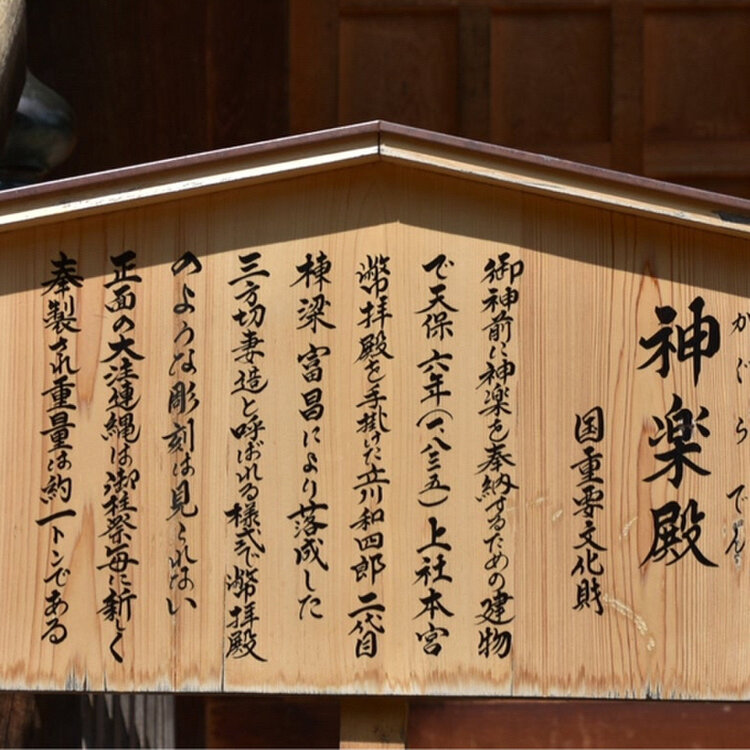 かぐらでん
神楽殿
国重要文化財
御神前に神楽を奉納するための建物
で天保六年(一八三五)上社本宮
幣拝殿を手掛けた立川和四郎二代目
棟梁富昌により落成した
三方切妻造と呼ばれる様式で幣拝殿
のような彫刻は見られない
正面の大注連縄は御柱祭毎に新しく
奉製され重量は約一トンである